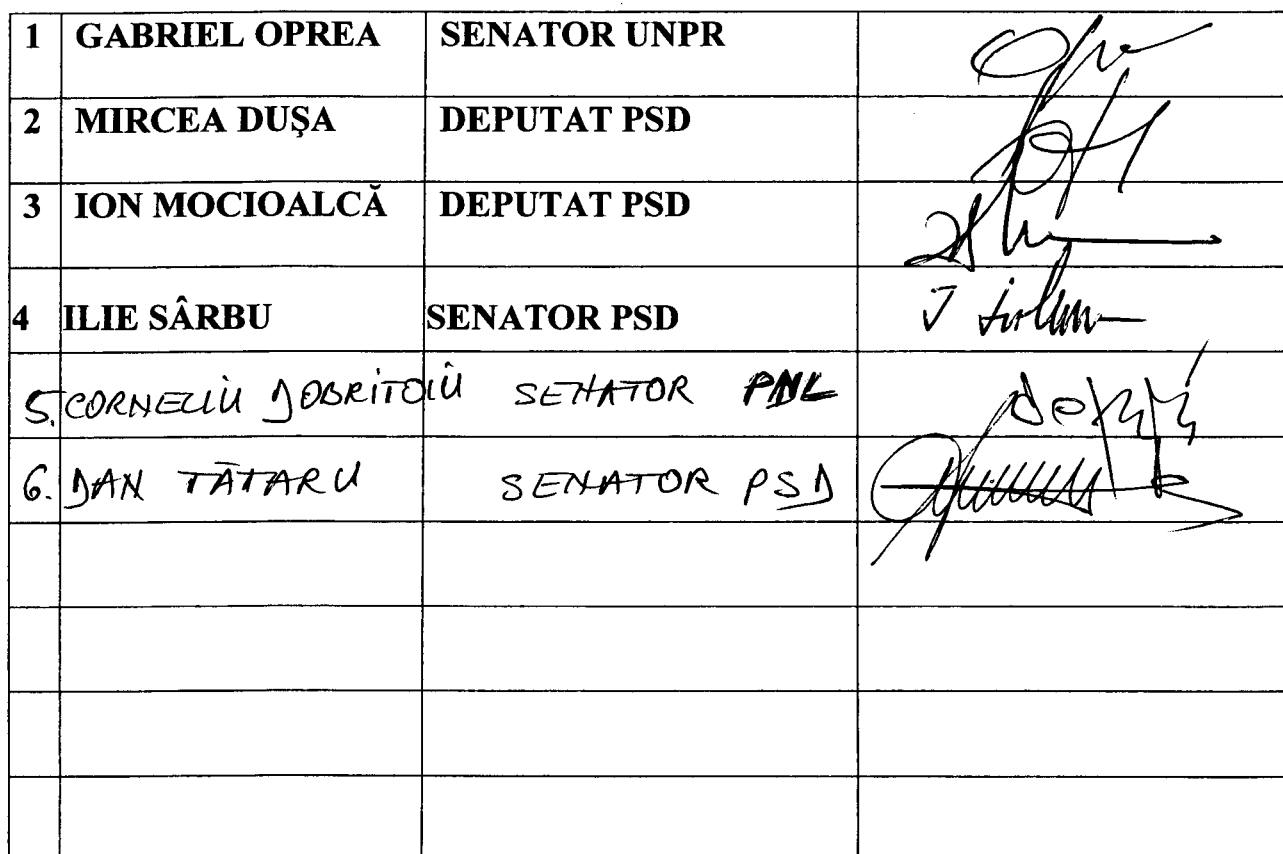 1 GABRIEL OPREA SENATOR UNPR
2 MIRCEA DUŞA DEPUTAT PSD
3 ION MOCIOALCĂ DEPUTAT PSD
4 ILIE SÂRBU SENATOR PSD
5. CORNELIU DOBRITOIU SENATOR PNL
6. DAN TĂTARU SENATOR PSD